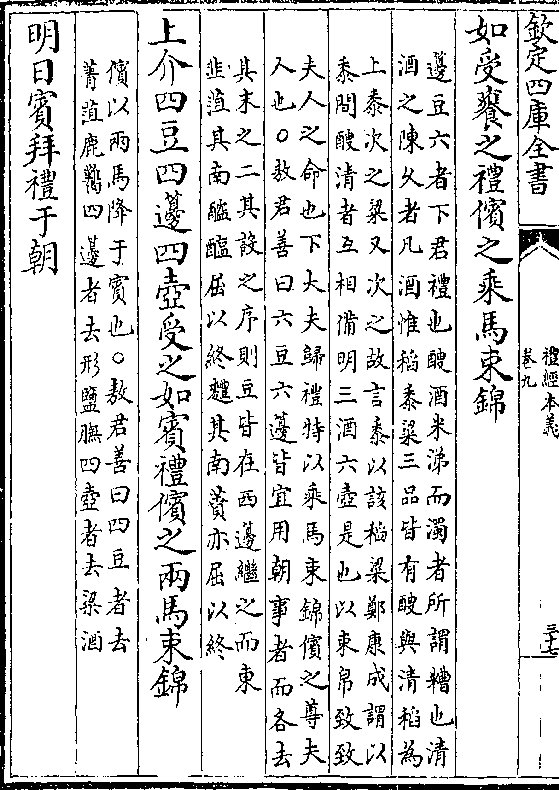 欽定四庫全書
禮經本義
卷九
三十七
如受饔之禮儐之乘馬束錦
籩豆六者下君禮也醙酒米涕而濁者所謂糟也清
酒之陳乆者凡酒惟稻黍粱三品皆有醙與清稻為
上黍次之粱又次之故言黍以該稻粱鄭康成謂以
黍間醙清者互相備明三酒六壺是也以束帛致致
夫人之命也下大夫歸禮特以乘馬束錦儐之尊夫
人也○敖君善曰六豆六籩皆宜用朝事者而各去
其末之二其設之序則豆皆在西籩繼之而東
韭菹其南醓醢屈以終䵄其南蕡亦屈以終
上介四豆四籩四壺受之如賓禮儐之兩馬束錦
儐以兩馬降于賓也○敖君善曰四豆者去
菁菹鹿臡四籩者去形鹽膴四壺者去粱酒
明日賓拜禮于朝